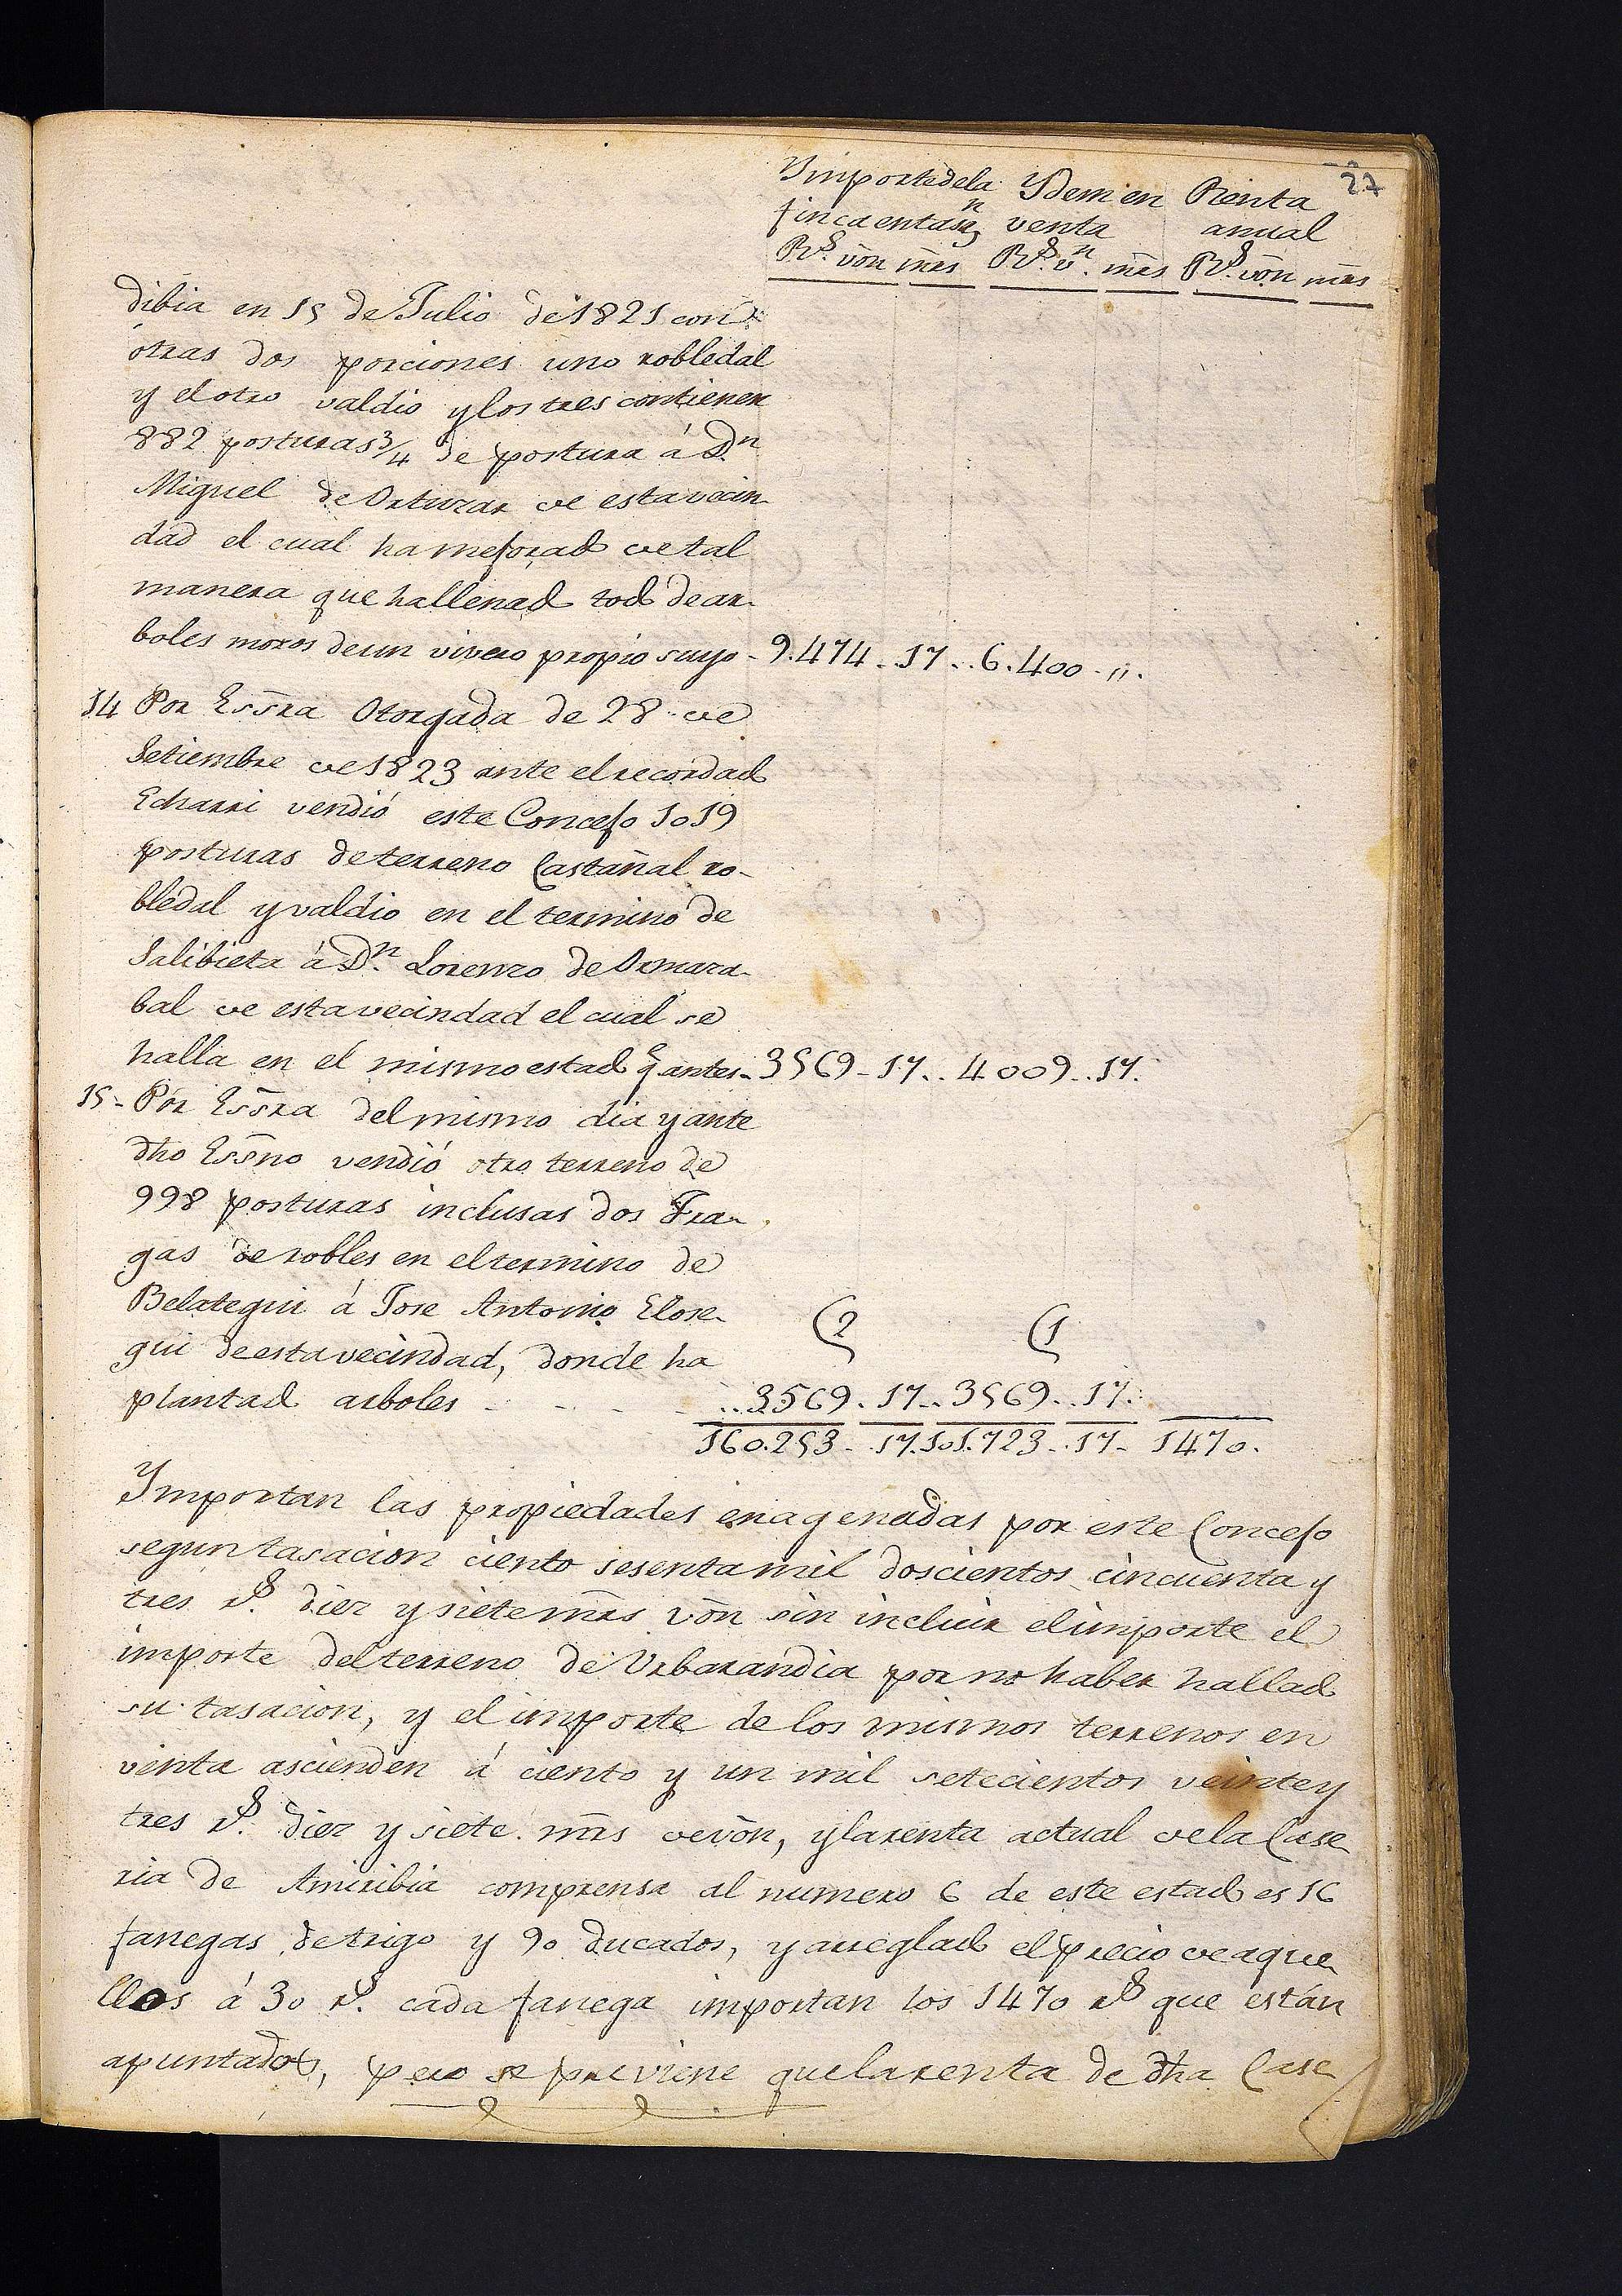 27
Ymporte de la Ydem en Renta
finca en tasn venta anual
Rs. von mrs Rs. vn. mrs Rs. von mrs
dibia en 15 de Julio de 1821 con
otras dos porciones uno robledal
y el otro valdio y los tres contienen
882 posturas 3/4 de postura á Dn
Miguel de Orturar de esta vecin
dad el cual ha mejorado de tal
manera que ha llenado todo de ar-
boles mozos de un vivero propio suyo - 9.474 - 17 - 6.400 - ,,.
14 Por Essra Otorgada de 28 de
Setiembre de 1823 ante el recordado
Echarri vendió este Concejo 1019
posturas de terreno Castañal ro-
bledal y valdio en el termino de
Salibieta á Dn. Lorenzo de Ormaza-
bal de esta vecindad el cual se
halla en el mismo estado qe antes - 3569 - 17 - 4009 - 17.
15 - Por Essra del mismo dia y ante
dho Essno vendió otro terreno de
998 posturas inclusas dos Fra-
gas de robles en el termino de
Belategui á Jose Antonio Elose-
gui de esta vecindad, donde ha
(2 (1
plantado arboles - - - - 3569 - 17 - 3569 - 17.
160.253 - 17. 101.723 - 17 - 1470.
Ymportan las propiedades enagenadas por este Concejo
segun tasacion ciento sesenta mil doscientos cincuenta y
tres rs. diez y siete mrs von sin incluir el importe el
importe del terreno de Urbarandia por no haber hallado
su tasacion, y el importe de los mismos terrenos en
venta ascienden á ciento y un mil setecientos veinte y
tres rs. diez y siete mrs de von, y la renta actual de la Case
ria de Amiribia comprensa al numero 6 de este estado es 16
fanegas de trigo y 90 ducados, y arreglado el precio de aque
llos á 30 rs. cada fanega importan los 1470 rs que están
apuntados, pero se previene que la renta de dha Case